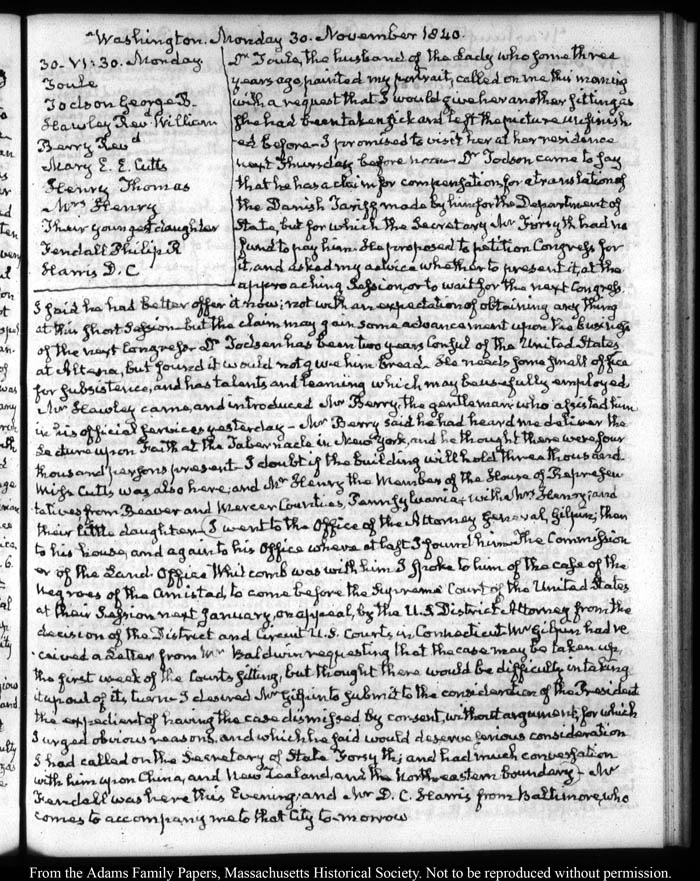 Washington. Monday 30. November 1840.
30. VI: 30. Monday
Foule
Todson George B.
Hawley Revd. William
Berry Revd
Mary E. E. Cutts
Henry Thomas
Mrs Henry
Their youngest daughter
Fendall Philip R
Harris D. C
Dr Foule, the husband of the Lady who some three
years ago, painted my portrait, called on me this morning
with a request that I would give her another sitting as
she had been taken sick and left the picture unfinish
ed before. I promised to visit her at her residence
next Thursday before noon. Dr Todson came to say
that he has a claim for compensation for a translation of
the Danish Tariff made by him for the Department of
State, but for which the Secretary Mr Forsyth had no
fund to pay him. He proposed to petition Congress for
it, and asked my advice whether to present it at the
approaching Session, or to wait for the next Congress.
I said he had better offer it now; not with an expectation of obtaining any thing
at this short Session but the claim may gain some advancement upon the business
of the next Congress. Dr Todson has been two years Consul of the United States
at Altona, but found it would not give him bread. He needs some small office
for subsistence, and has talents and learning which may be usefully employed
Mr Hawley came, and introduced Mr Berry, the gentleman who assisted him
in his official services yesterday – Mr Berry said he had heard me deliver the
Lecture upon Faith at the Tabernacle in New York, and he thought there were four
thousand persons present – I doubt if the building will hold three thousand.
Miss Cutts was also here; and Mr Henry the Member of the House of Represen
tatives from Beaver and Mercer Counties, Pennsylvania, with Mrs Henry, and
their little daughter – I went to the Office of the Attorney General, Gilpin; then
to his house, and again to his Office where at last I found him. The Commission
er of the Land Office Whitcomb was with him. I spoke to him of the case of the
Negroes of the Amistad, to come before the Supreme Court of the United States
at their Session next January, on appeal, by the U.S District Attorney from the
decision of the District and Circuit U.S. Courts in Connecticut. Mr Gilpin had re
ceived a Letter from Mr Baldwin requesting that the case may be taken up,
the first week of the Courts sitting, but thought there would be difficulty in taking
it up out of its turn. I desired Mr Gilpin to submit to the consideration of the President
the expedient of having the case dismissed by consent, without argument, for which
I urged obvious reasons, and which he said would deserve serious consideration
I had called on the Secretary of State Forsyth; and had much conversation
with him upon China, and New Zealand, and the North eastern Boundary – Mr
Fendall was here this Evening; and Mr D. C. Harris from Baltimore, who
comes to accompany me to that City to-morrow
From the Adams Family Papers, Massachusetts Historical Society. Not to be reproduced without permission.